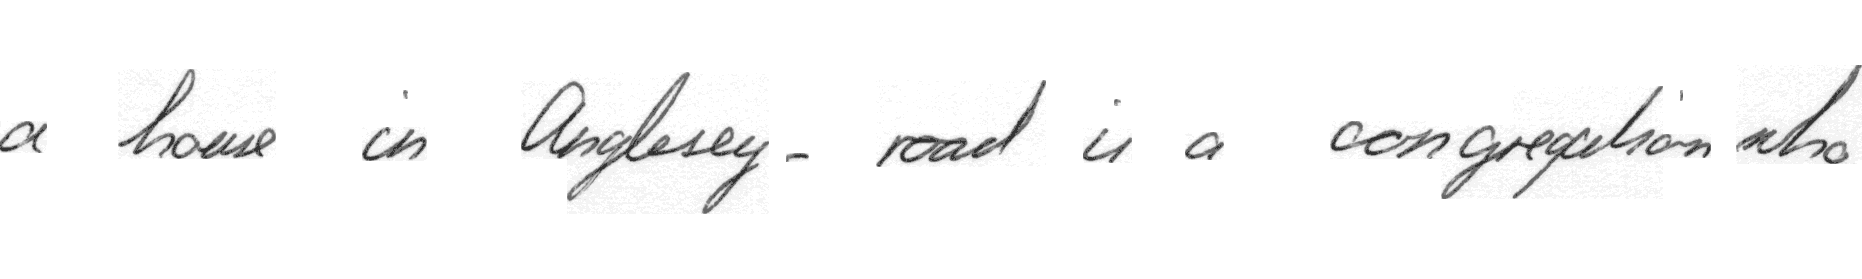 a house in Anglesey - road is a congregation who